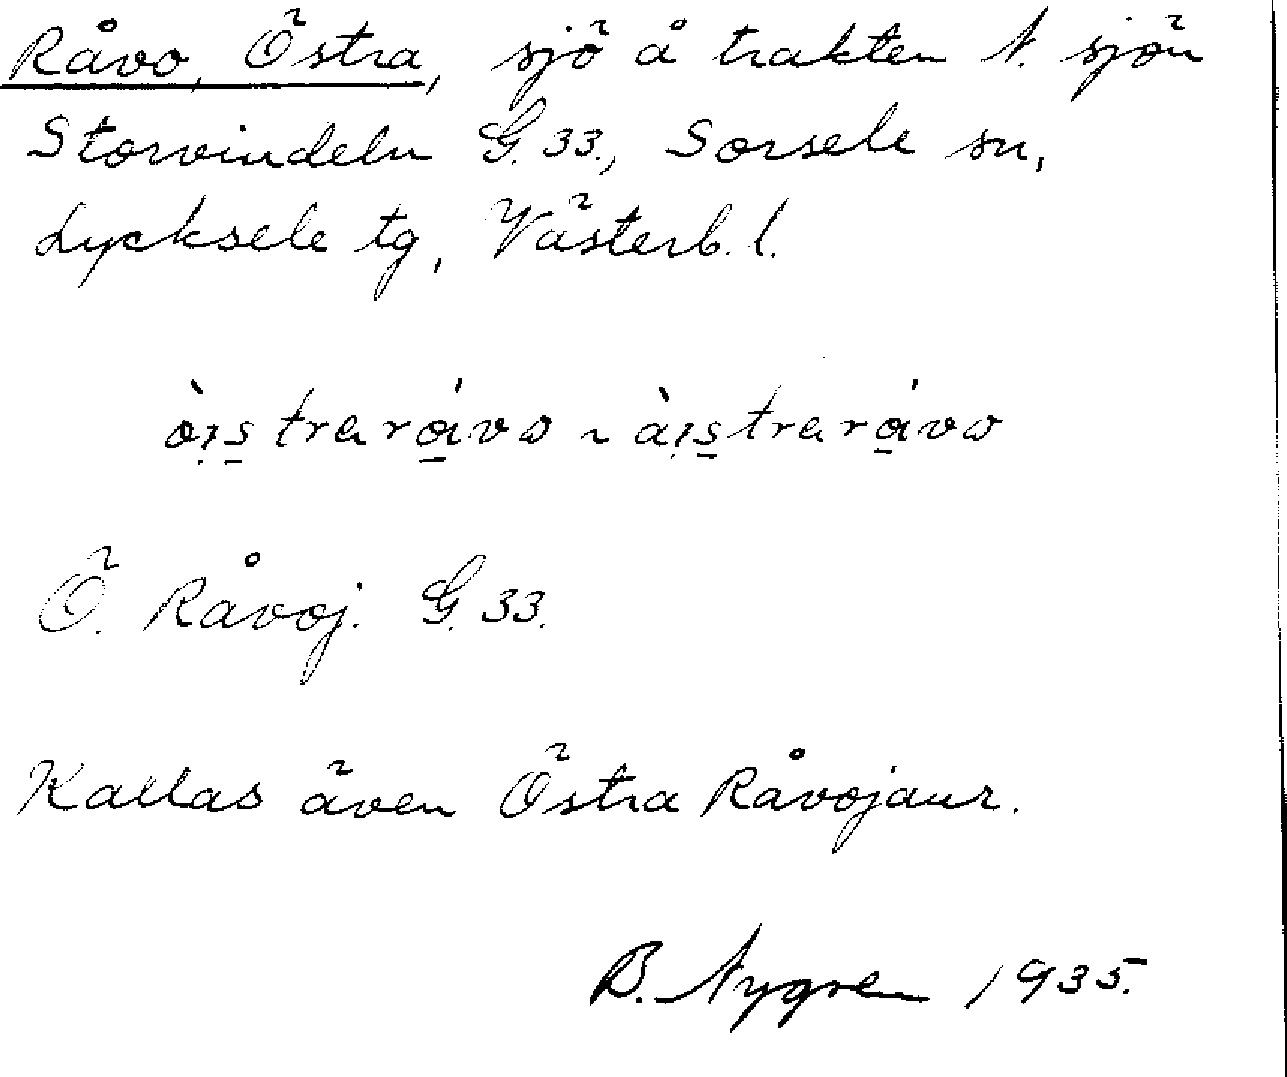 Råvo, Östra, sjö å trakten N. sjön
Storvindeln G. 33., Sorsele sn,
Lycksele tg, Västerb. l.
Ö. Råvoj. G. 33.
Kallas även Östra Råvojaur.
B. Nygren 1935.